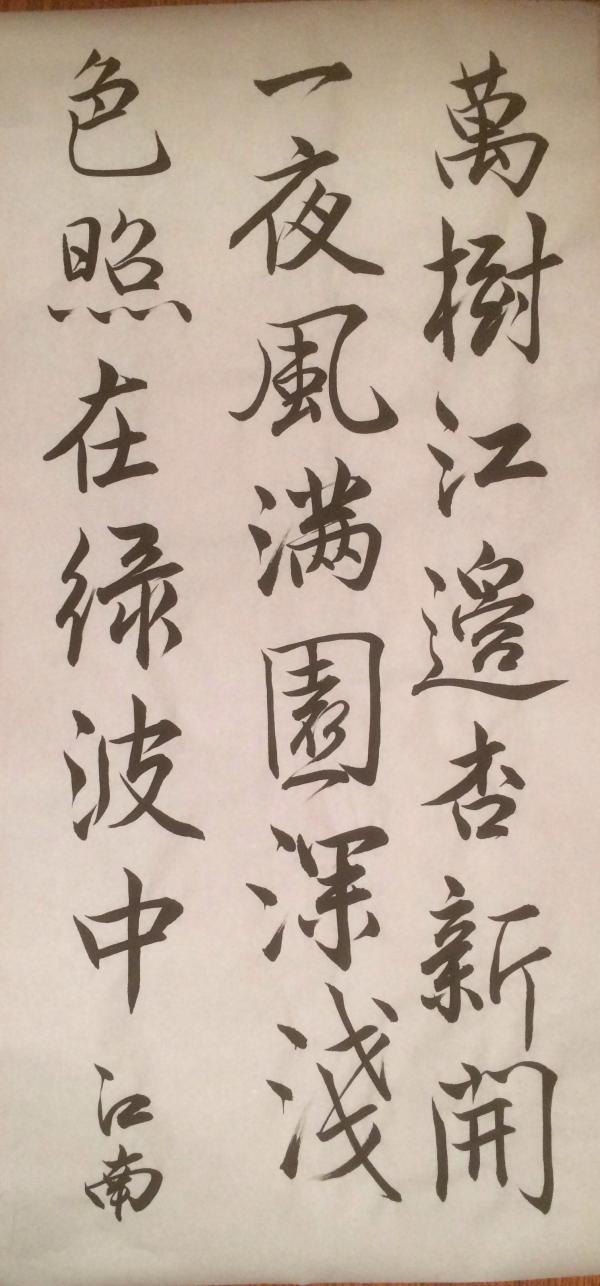 萬樹江邊杏新開
一夜風满園深淺
色照在緑波中
江南